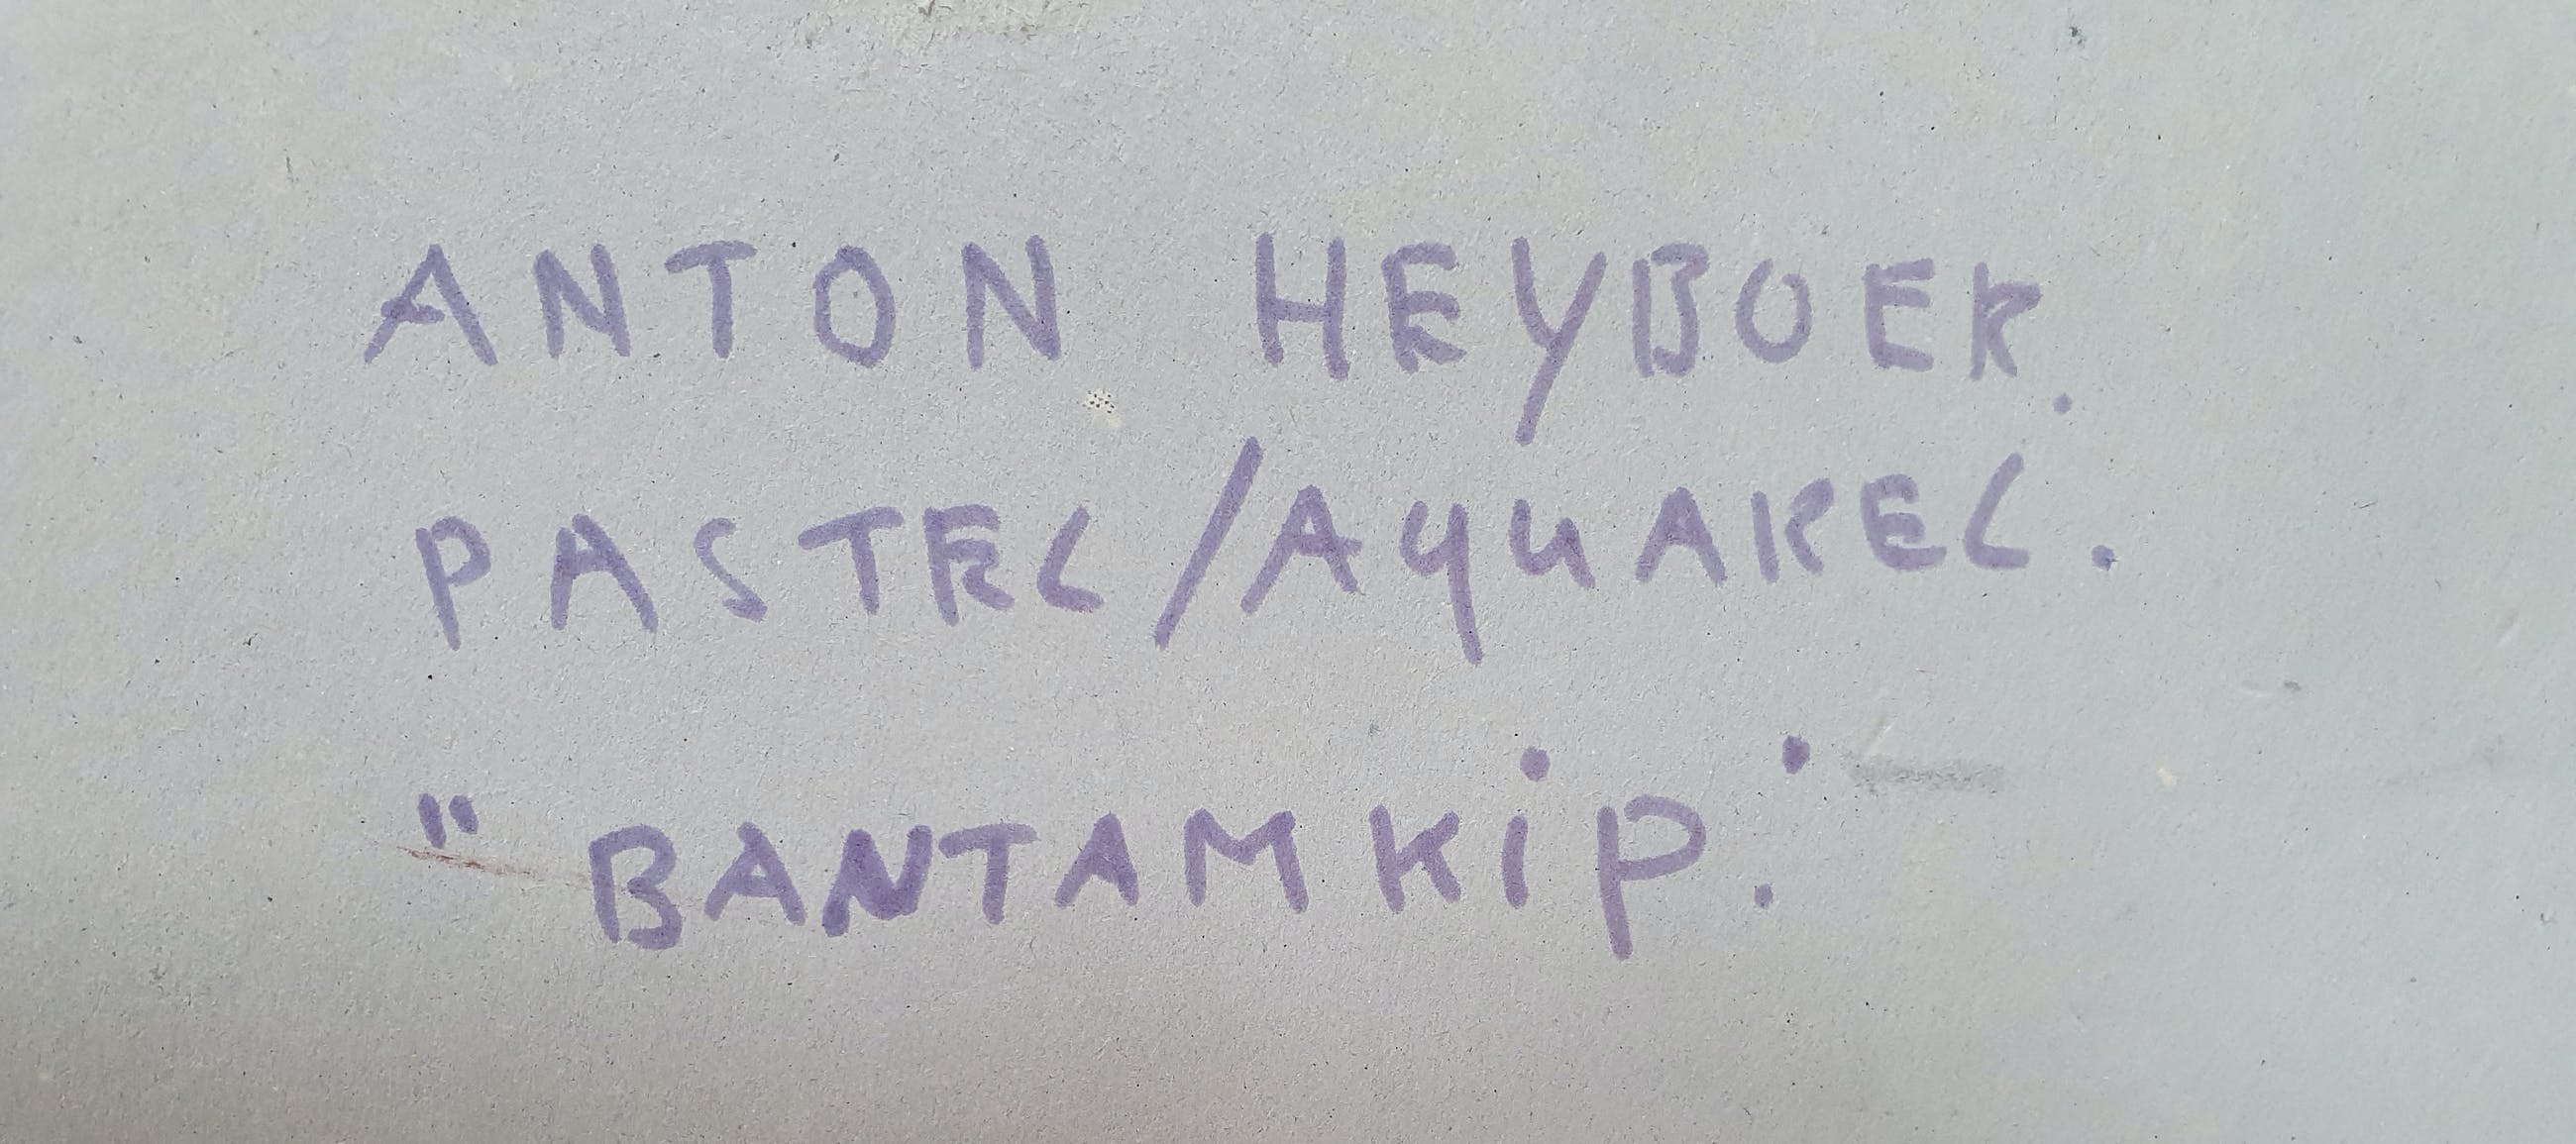 ANTON HEYBOER.
PASTEL/AQUAREL.
"BANTAMKIP."